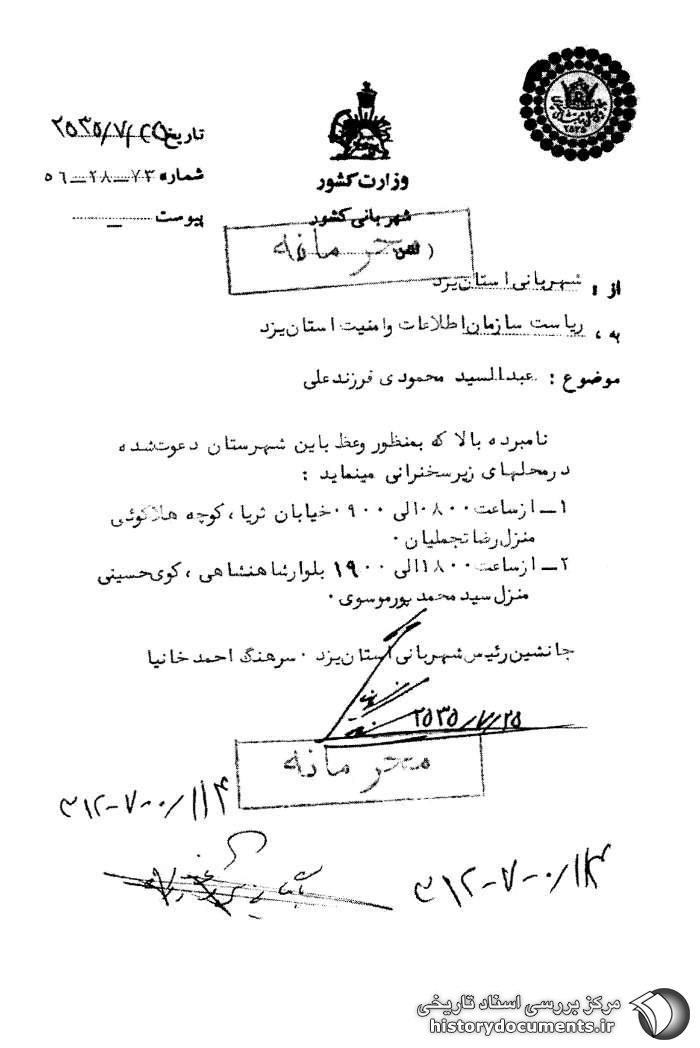 تاریخ ۲۵۳۵/۷/۲۵
شماره ۷۳ــ۲۸ــ۵۶
پیوست ــ
وزارت کشور
شهربانی کشور
محرمانه
از : شهربانی استان یزد
به ، ریاست سازمان اطلاعات وامنیت استان یزد
موضوع : عبدالسید محمودی فرزندعلی
نامبرده بالا که بمنظور وعظ باین شهرستان دعوت‌شده
درمحلهای زیرسخنرانی مینماید :
۱ــ ازساعت ۰۸۰۰ الی ۰۹۰۰ خیابان ثریا ، کوچه هلاکوئی
منزل رضا تجملیان ۰
۲ــ ازساعت ۱۸۰۰ الی ۱۹۰۰ بلوار شاهنشاهی ، کوی حسینی
منزل سید محمد پورموسوی ۰
جانشین رئیس شهربانی استان یزد ۰ سرهنگ احمد خانیا
۲۵۳۵/۷/۲۵
محرمانه
مرکز بررسی اسناد تاریخی
historydocuments.ir